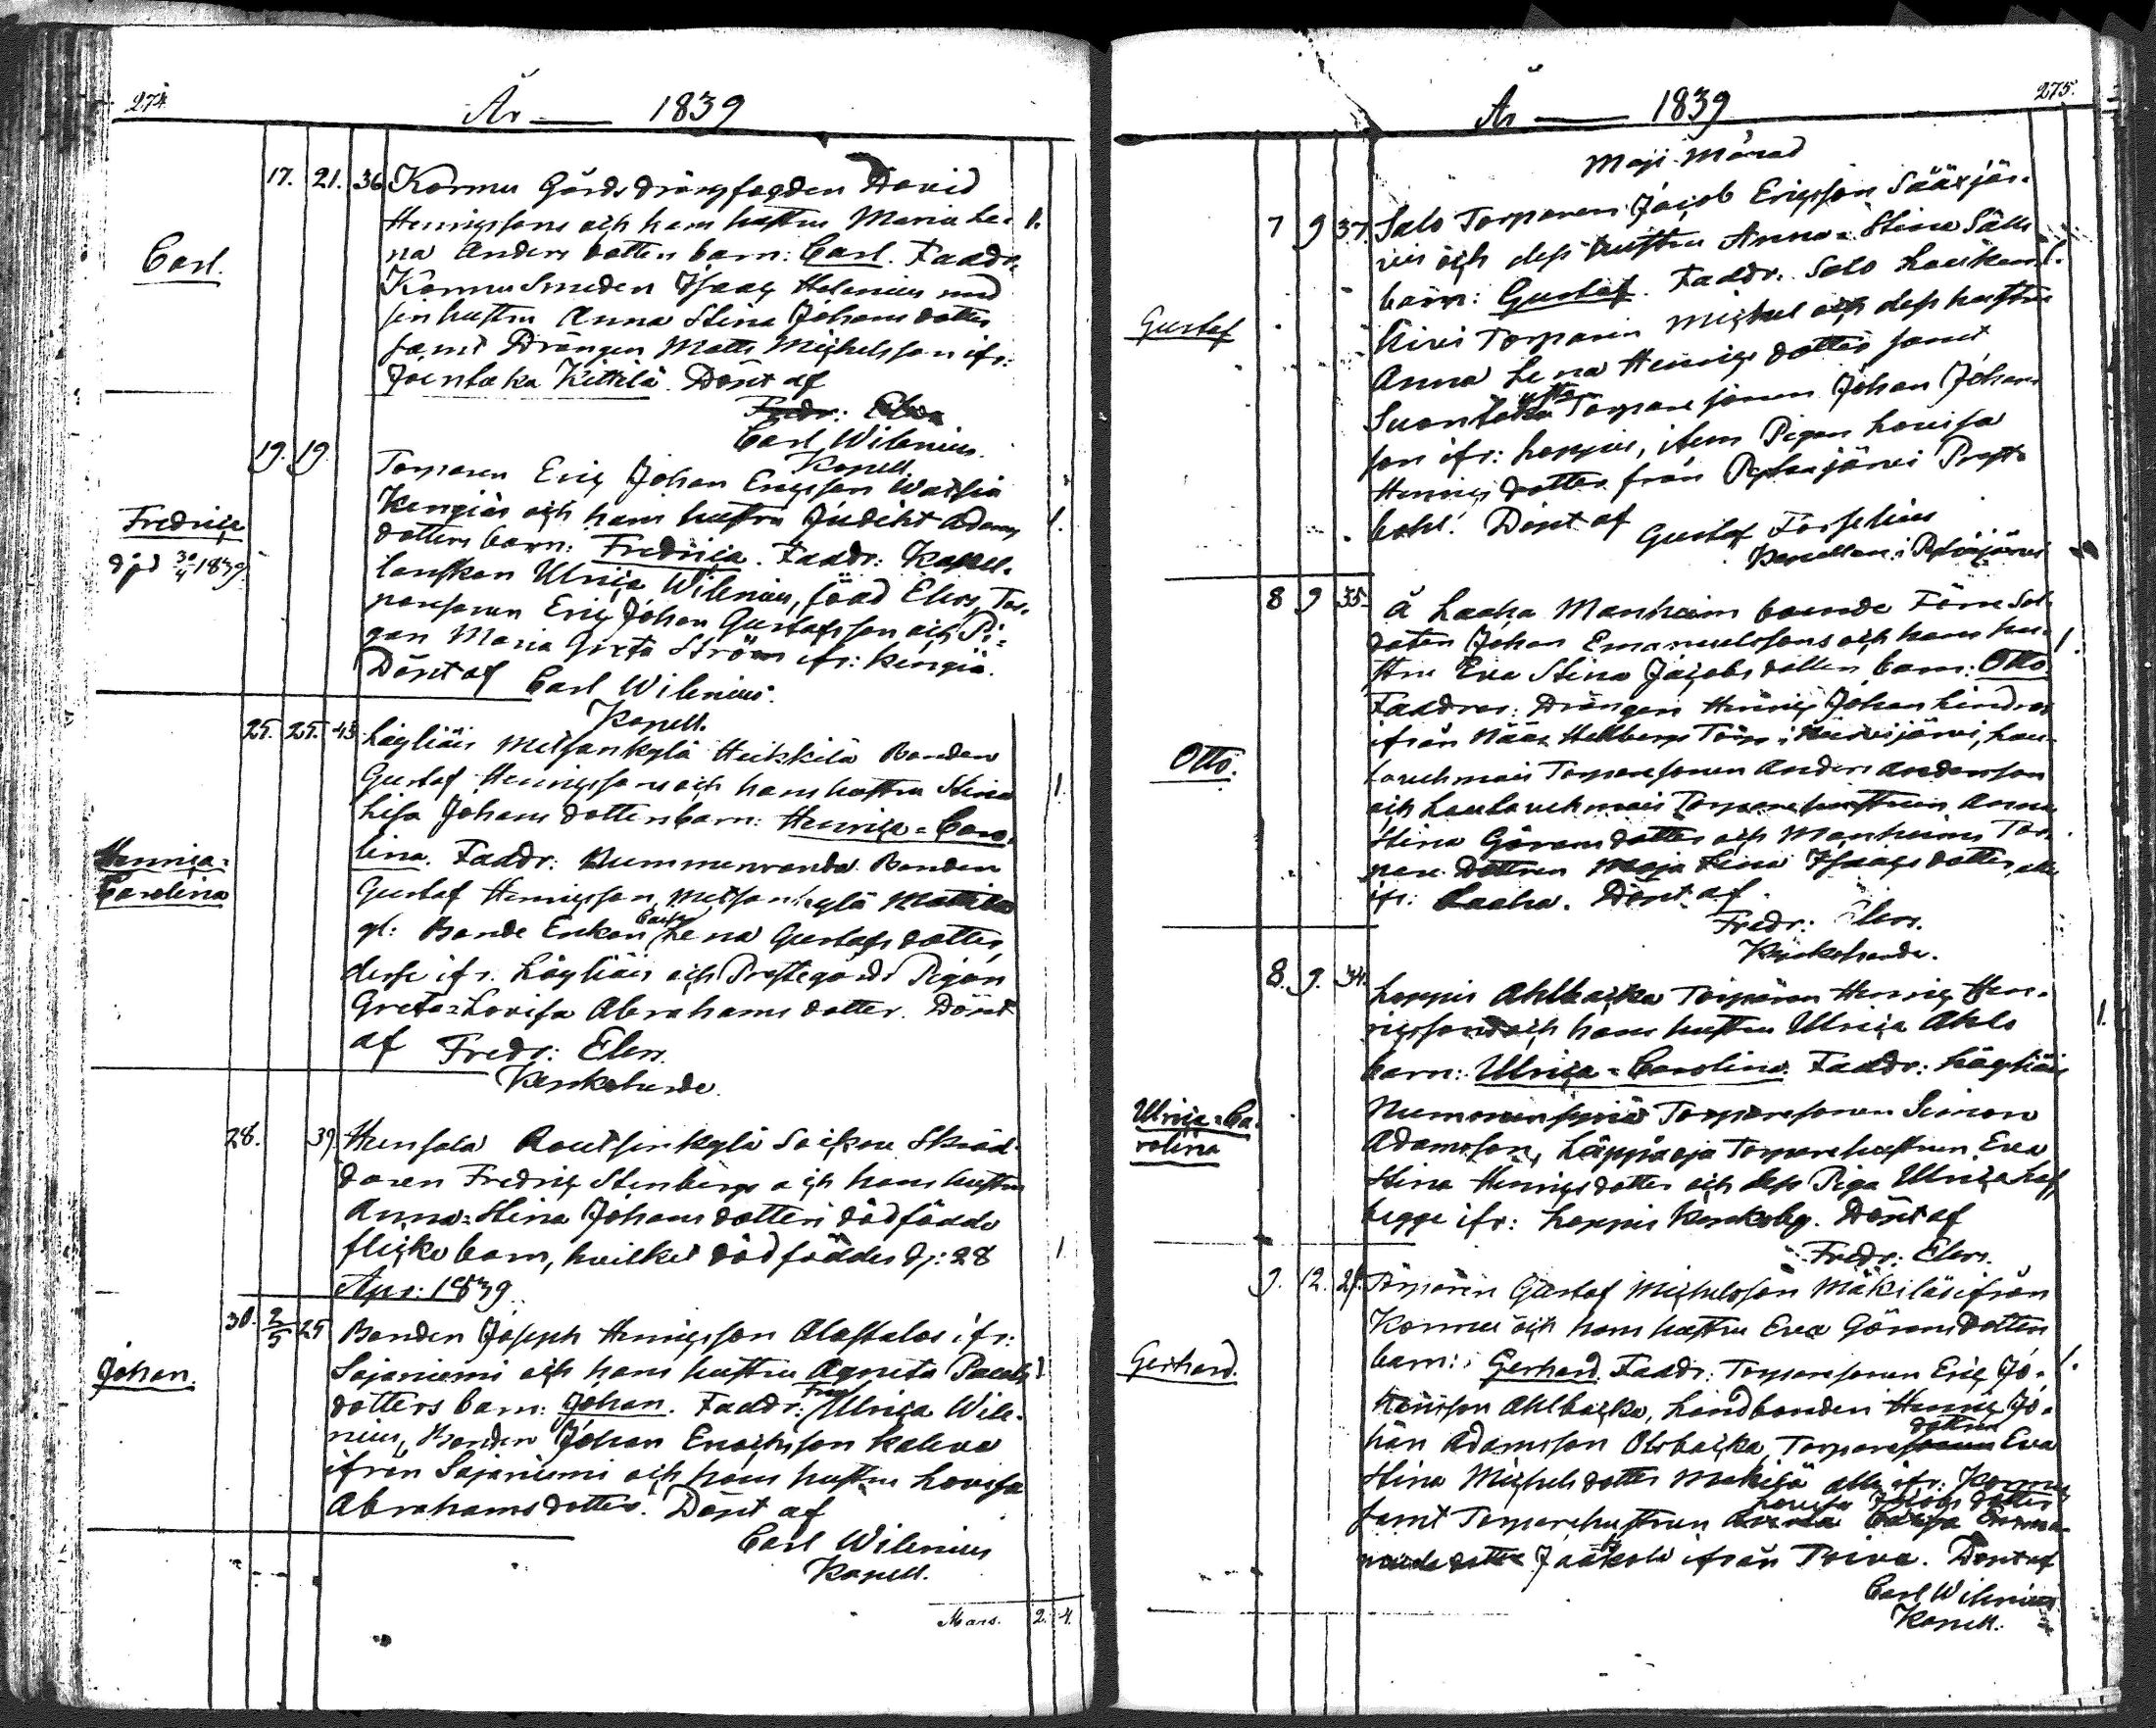 274.
År 1839
17. 21. 36 Kormu Gårds drängfogden David
Henricssons och hans hustru Maria Le- 1.
na Anders dotters barn: Carl. Faddr:
Carl.
Kormu Smeden Isaac Helenius med
sin hustru Anna Stina Johans dotter
samt Drängen Matts Michelsson ifr:
Joentaka Kittilä. Döpt af
Fredr: Elers
Carl Wilenius.
Kapell.
19. 19. Torparen Eric Johan Ericsson
Kengiäs och hans hustru Judiht Adams 1.
Fredrica
död 30/4 1839.
dotters barn: Fredrica. Faddr: Kapell-
lanskan Ulrica Wilenius, född Elers, Tor-
paresonen Eric Johan Gustafsson och Pi-
gan Maria Greta Ström ifr: Kengiä.
Döpt af Carl Wilenius.
Kapell.
25. 25. 43 Läyliäis Metsänkylä Heikkilä Bonden
Gustaf Henricssons och hans hustru Stina 1.
Lisa Johans dotters barn: Henrica=Caro-
Henrica=
Carolina
lina. Faddr: Bonden
Gustaf Henricsson, Metsänkylä Mattila
gl: Bonde Enkan Caisa Lena Gustafs dotter,
desse ifr. Läyliäis och Prestegårds Pigan
Greta=Lovisa Abrahams dotter. Döpt
af Fredr: Elers.
Kyrkoherde.
28. 39. Hunsala Routsinkylä Soikou Skräd-
daren Fredric Stenbergs och hans hustru
Anna=Stina Johans dotters dödfödde
flicko barn, hvilket död föddes d: 28 1
Apr: 1839.
30. 2/5 25 Bonden Joseph Henricsson Alastalos ifr:
Johan.
Sajaniemi och hans hustru Agneta Pauls 1
dotters barn: Johan. Faddr: Fru Ulrica Wile-
nius, Bonden Johan Enochsson Kaleva
ifrån Sajaniemi och hans hustru Lovisa
Abrahams dotter. Döpt af
Carl Wilenius
Kapell.
Mars. 2. 4.
275.
År 1839
Maji Månad
7 9 37. Salo Torparen Jacob Ericsson Sääxjär-
vis och dess hustru Anna=Stina Sälls
barn: Gustaf. Faddr: Salo Laukan- 1.
Gustaf
kivi Torparen Michel och dess hustru
Anna Lena Henrics dotter samt
Suontaka Torpare sonen Johan Johans
son ifr: Loppis, item Pigan Lovisa
Henrics dotter från Pyhäjärvi Prest-
bohl. Döpt af Gustaf Forselius
Kapellan i Pyhäjärvi
8 9 35. Å Laaha Manheim boende Förre Sol-
daten Johan Emanuelssons och hans hu- 1.
stru Eva Stina Jacobs dotters barn: Otto.
Faddrar: Drängen Henric Johan Lindros
ifrån Hellbergs Torp i
Otto.
Torparesonen Anders Andersson
och Torparehustrun Anna
Stina Görans dotter och Manheims Tor-
pare dottren Maja Lena Isaacs dotter, alla
ifr: Laaha. Döpt af
Fredr: Elers.
Kyrkoherde.
8. 9. 34. Loppis Ahlbacka Torparen Henric Hen-
ricssons och hans hustru Ulrica Ahls 1.
barn: Ulrica=Carolina. Faddr: Läyliäis
Ulrica=Ca-
rolina
Torparesonen Simon
Adamsson, Torparehustrun Eva
Stina Henrics dotter och dess Piga Ulrica
begge ifr: Loppis Kyrkoby. Döpt af
Fredr: Elers.
9. 12. Torparen Gustaf Michelsson Mäkiläs ifrån
Kormu och hans hustru Eva Görans dotters
Gerhard.
barn: Gerhard. Faddr: Torparesonen Eric Jo- 1.
hansson Ahlbacka, Landbonden Henric Jo-
han Adamsson Olsbacka, Torpare dottren Eva
Stina Michels dotter Mäkilä alla ifr: Kormu
samt Torparehustrun Lovisa Jacobs dotter
Jaakola ifrån Toiva. Döpt af
Carl Wilenius
Kapell.